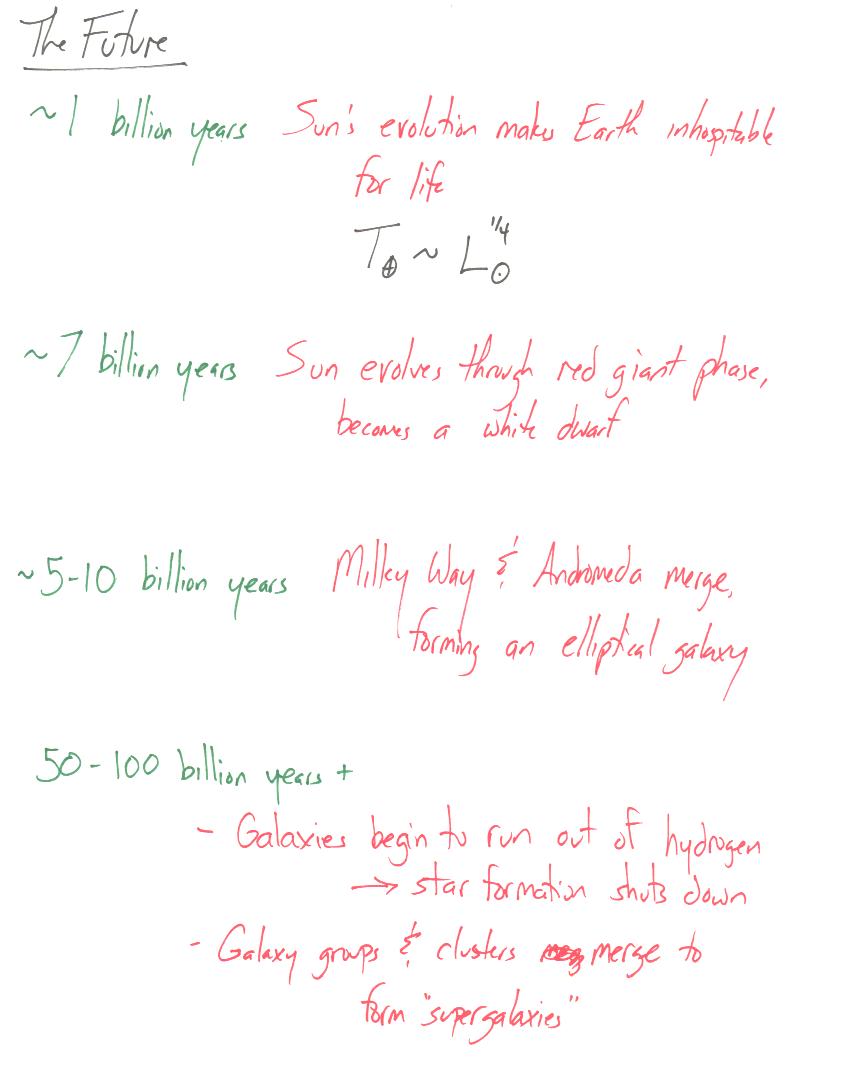 The Future
~1 billion years Sun's evolution makes Earth inhospitable
for life
T⊕ ~ L☉^1/4
~7 billion years Sun evolves through red giant phase,
becomes a white dwarf
~5-10 billion years Milky Way & Andromeda merge,
forming an elliptical galaxy
50-100 billion years +
- Galaxies begin to run out of hydrogen
→ star formation shuts down
- Galaxy groups & clusters merge to
form "supergalaxies"